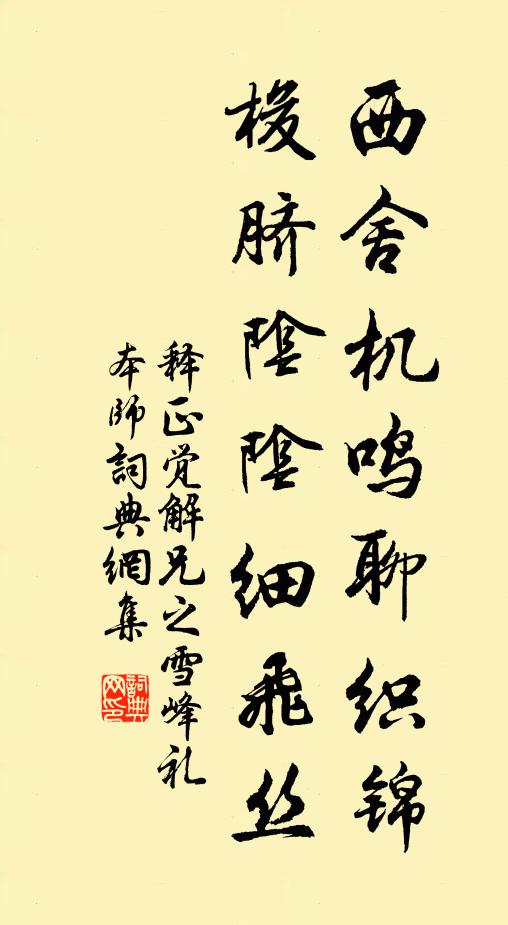 西舍机鸣聊织锦
梭脐陰陰细飛丝
释正觉解兄之雪峰礼
本師詞典網集
詞典网印